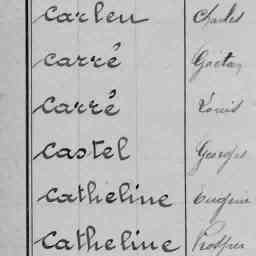 Carlen Charles
Carré Gaëtan
Carré Louis
Castel Georges
Catheline Eugène
Catheline Prosper